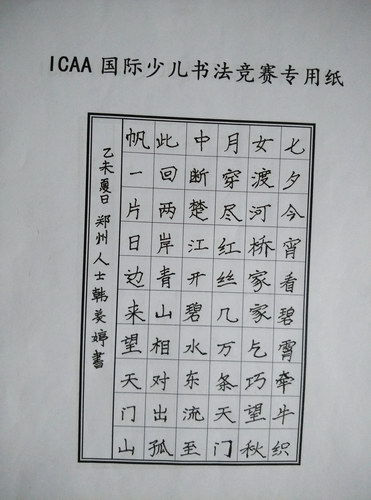 ICAA 国际少儿书法竞赛专用纸
七夕今宵看碧霄牵牛织
女渡河桥家家乞巧望秋
月穿尽红丝几万条天门
中断楚江开碧水东流至
此回两岸青山相对出孤
帆一片日边来望天门山
乙未夏日郑州人士韩姜婷書